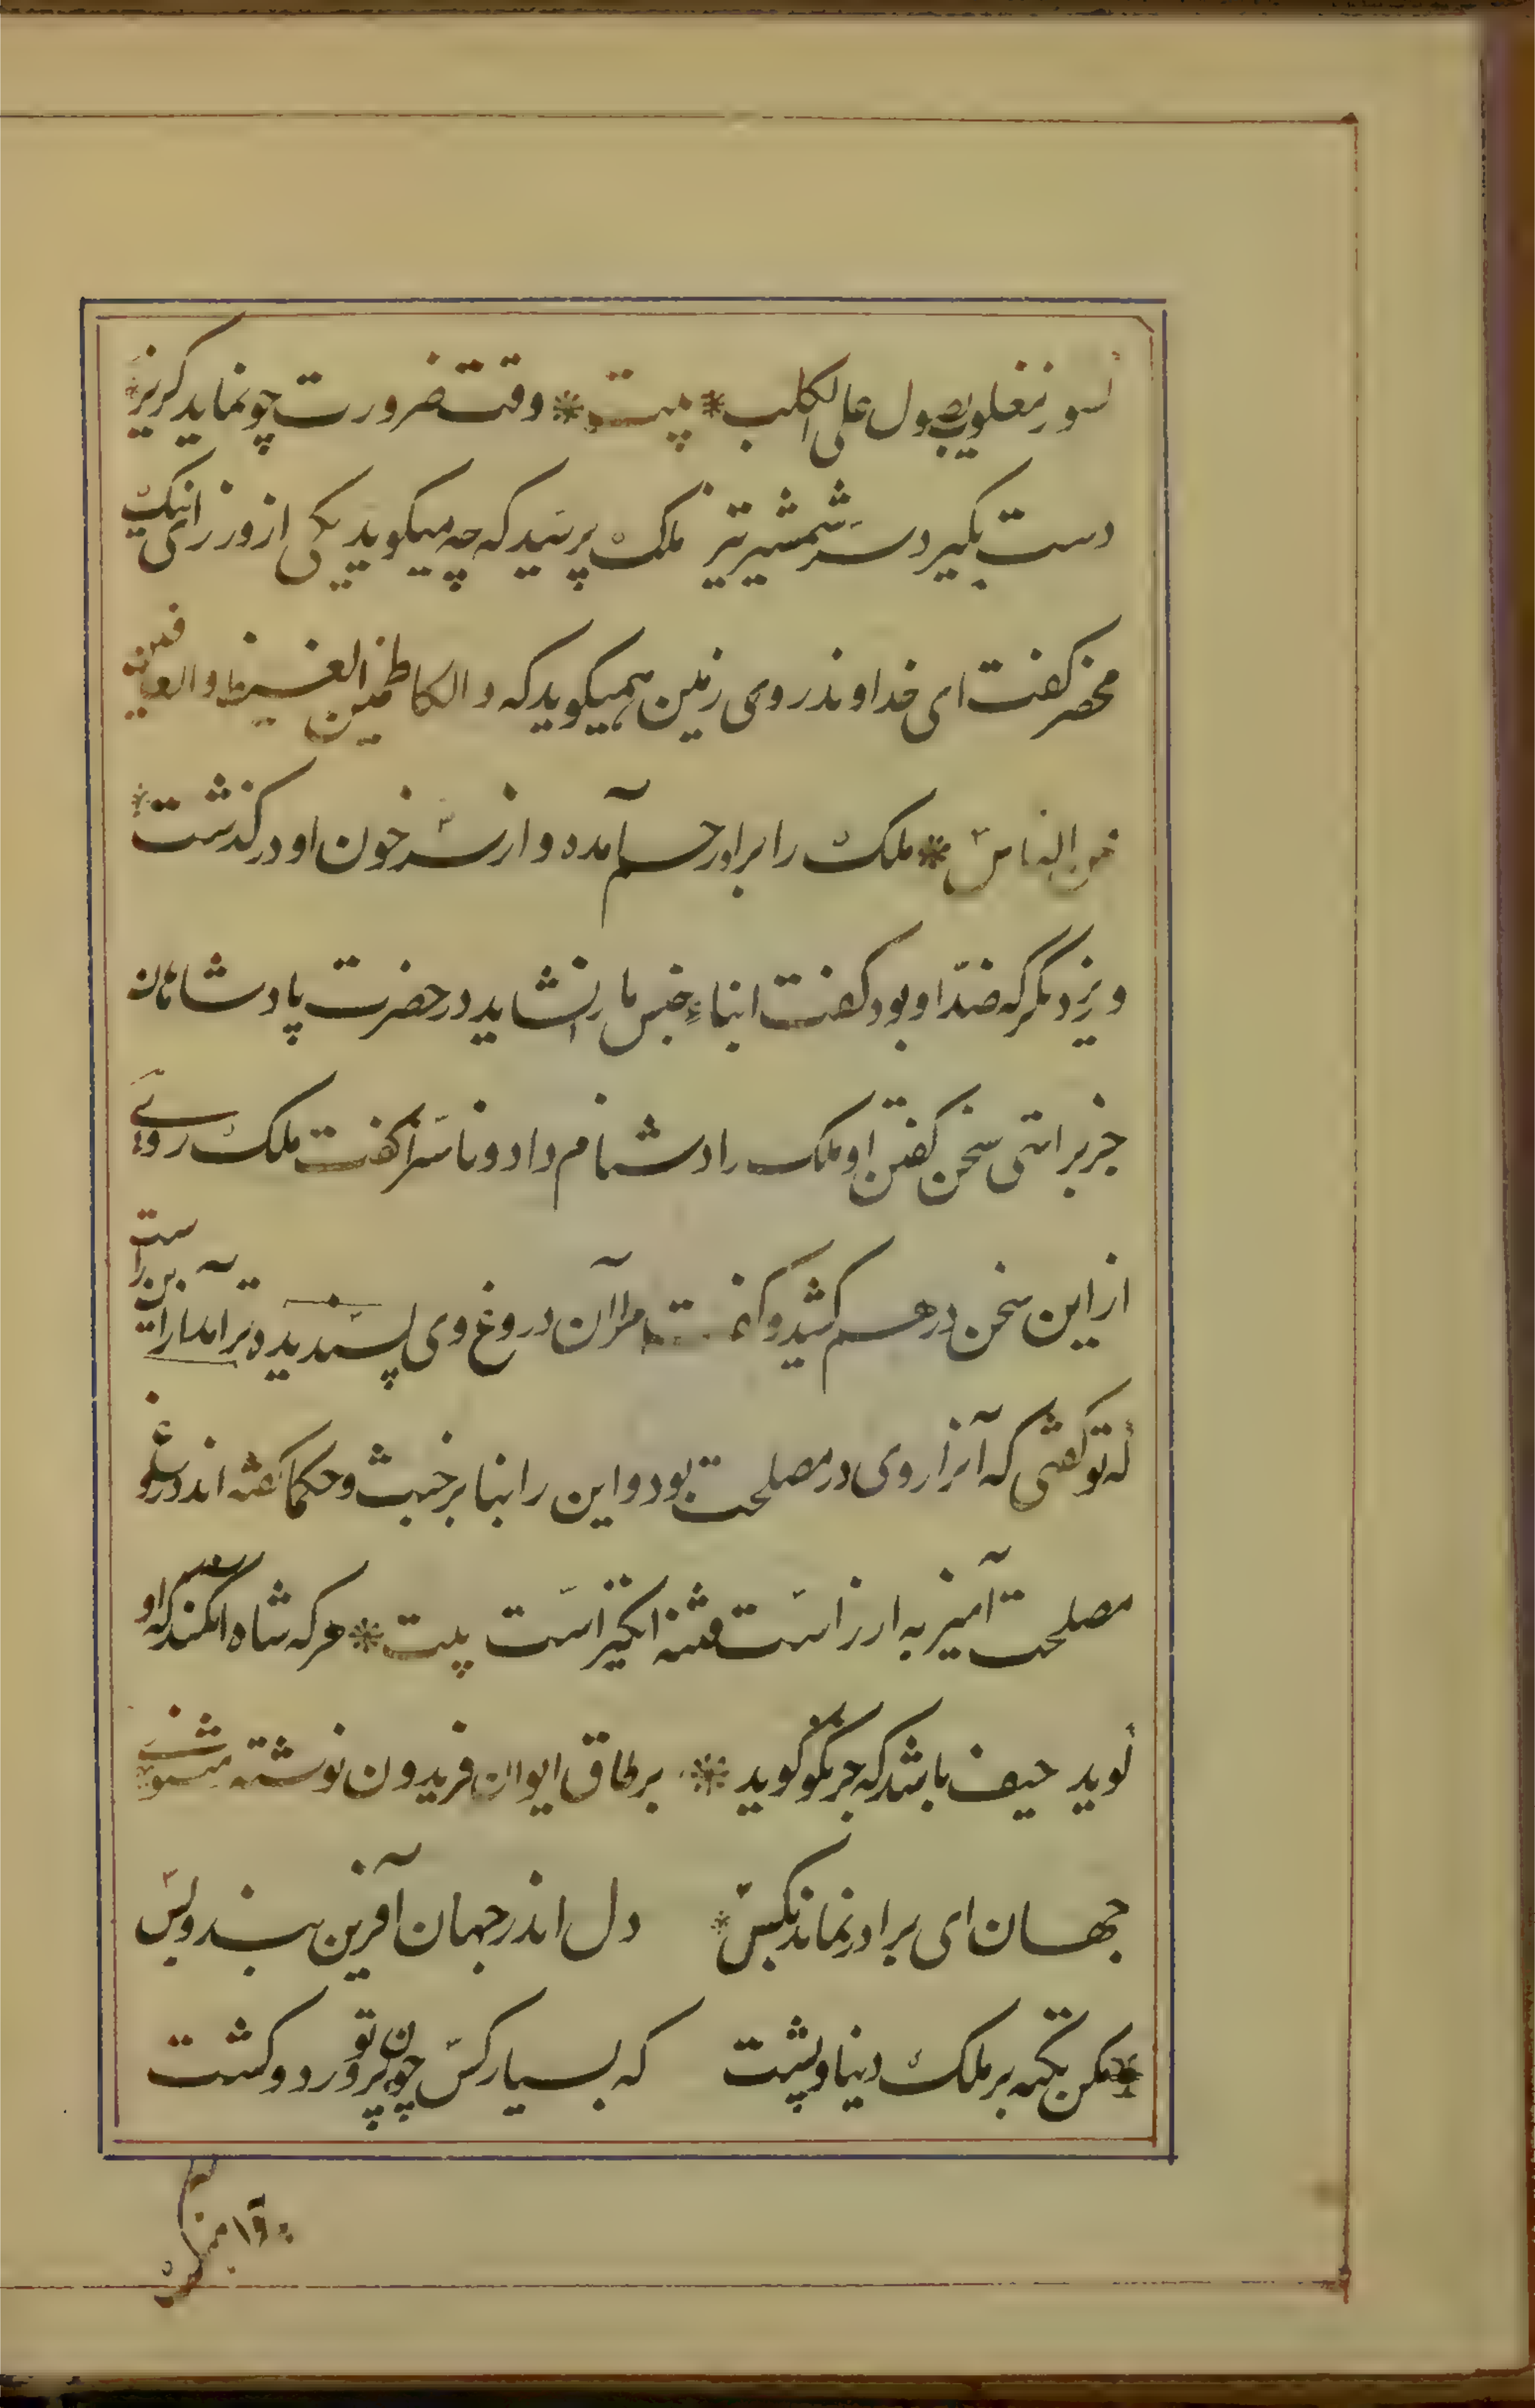 کسنور مغلوب یصول علی الکلب * بیت * وقت ضرورت چو نماند گریز *
دست بگیرد سر شمشیر تیز ملک پرسید که چه میگوید یکی از وزرای نیک
محضر گفت ای خداوند روی زمین همیگوید که والکاظمین الغیظ والعافین
عن الناس * ملک را برو رحم آمده و از سر خون او درگذشت *
وزیر دیگر که ضدّ او بود گفت ابناء جنس ما را نشاید در حضرت پادشاهان
جز براستی سخن گفتن او ملک را دشنام داد و ناسزا گفت ملک روی
از این سخن درهم کشید و گفت مرا آن دروغ وی پسندیده تر آمد ازین راست
که تو گفتی که آنرا روی در مصلحت بود و این را بنا بر خبث و حکما گفته اند دروغ
مصلحت آمیز به از راست فتنه انگیز است بیت * هر که شاه آنکند که او
گوید حیف باشد که جز نکو گوید * بر طاق ایوان فریدون نوشته مثنوی
جهان ای برادر نماند بکس * دل اندر جهان آفرین بند و بس
* مکن تکیه بر ملک دنیا و پشت که بسیار کس چون تو پرورد و کشت